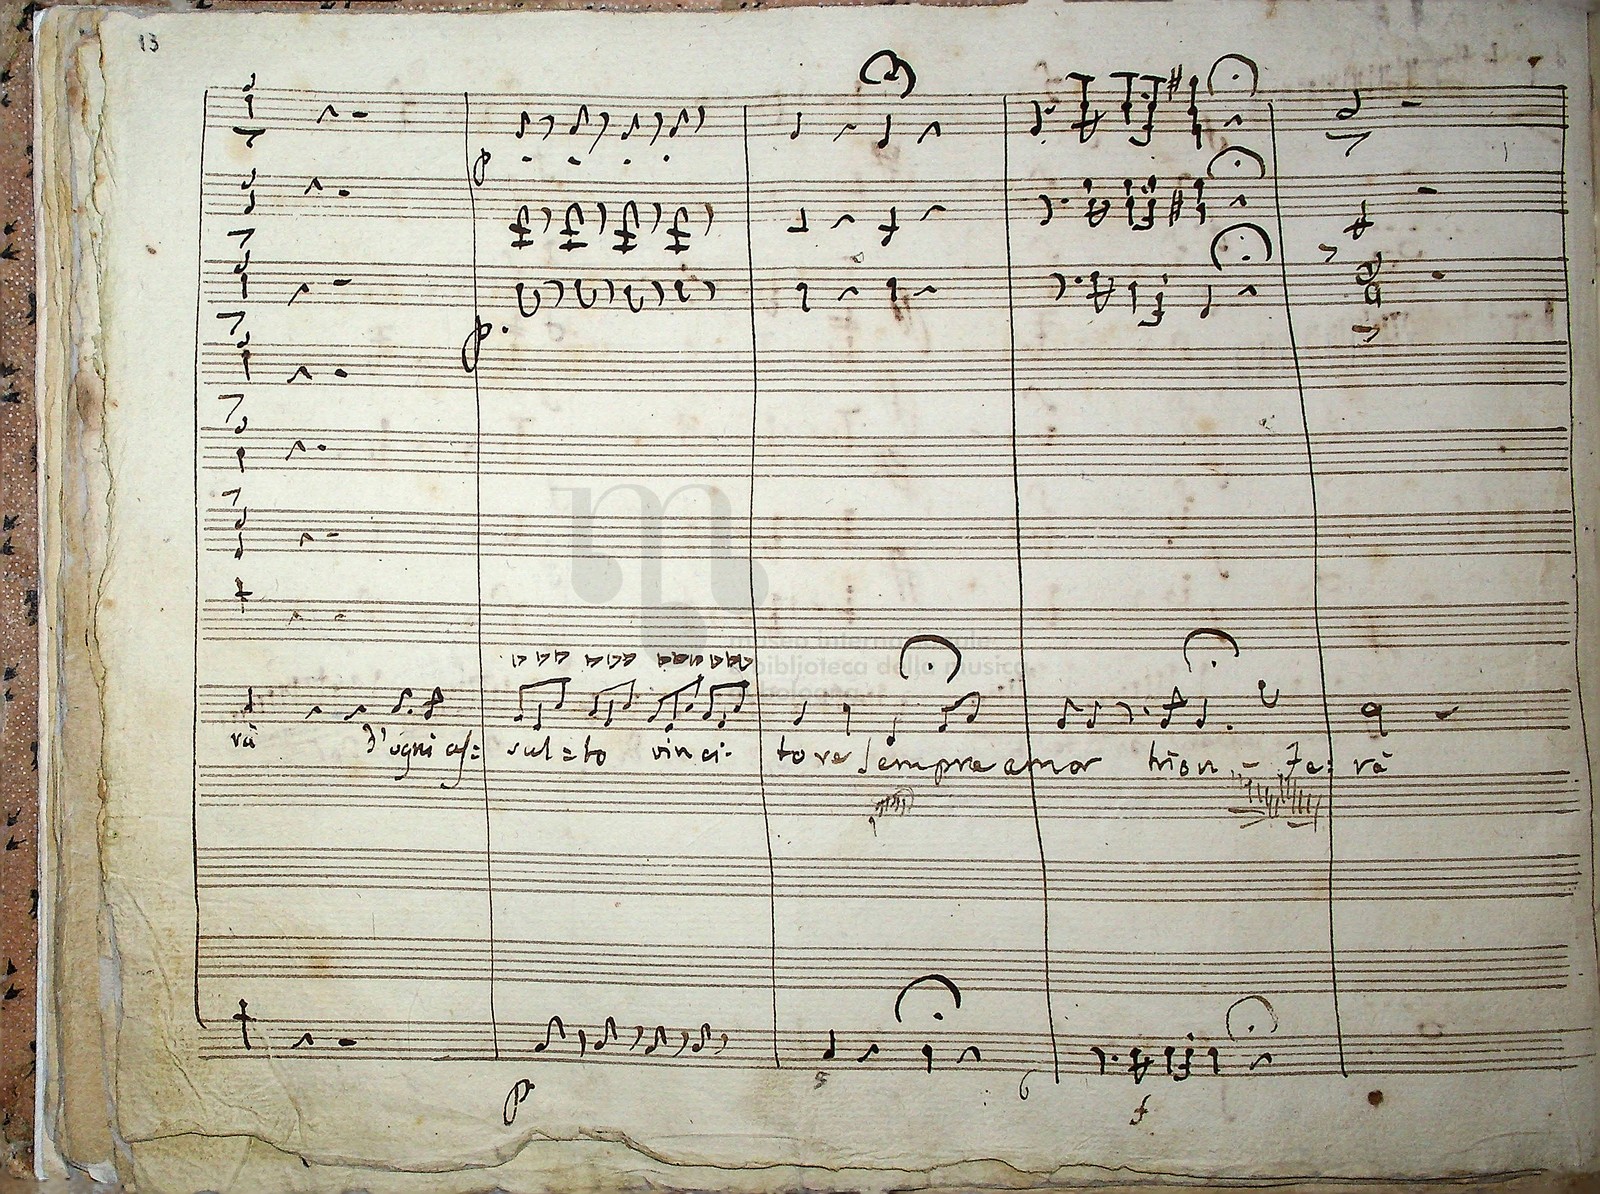 13
p
p.
museo internazionale
biblioteca della musica
bologna
rà d'ogni as= sul=to vinci= tore sempre amor trion - fe= rà
5 6
p. f